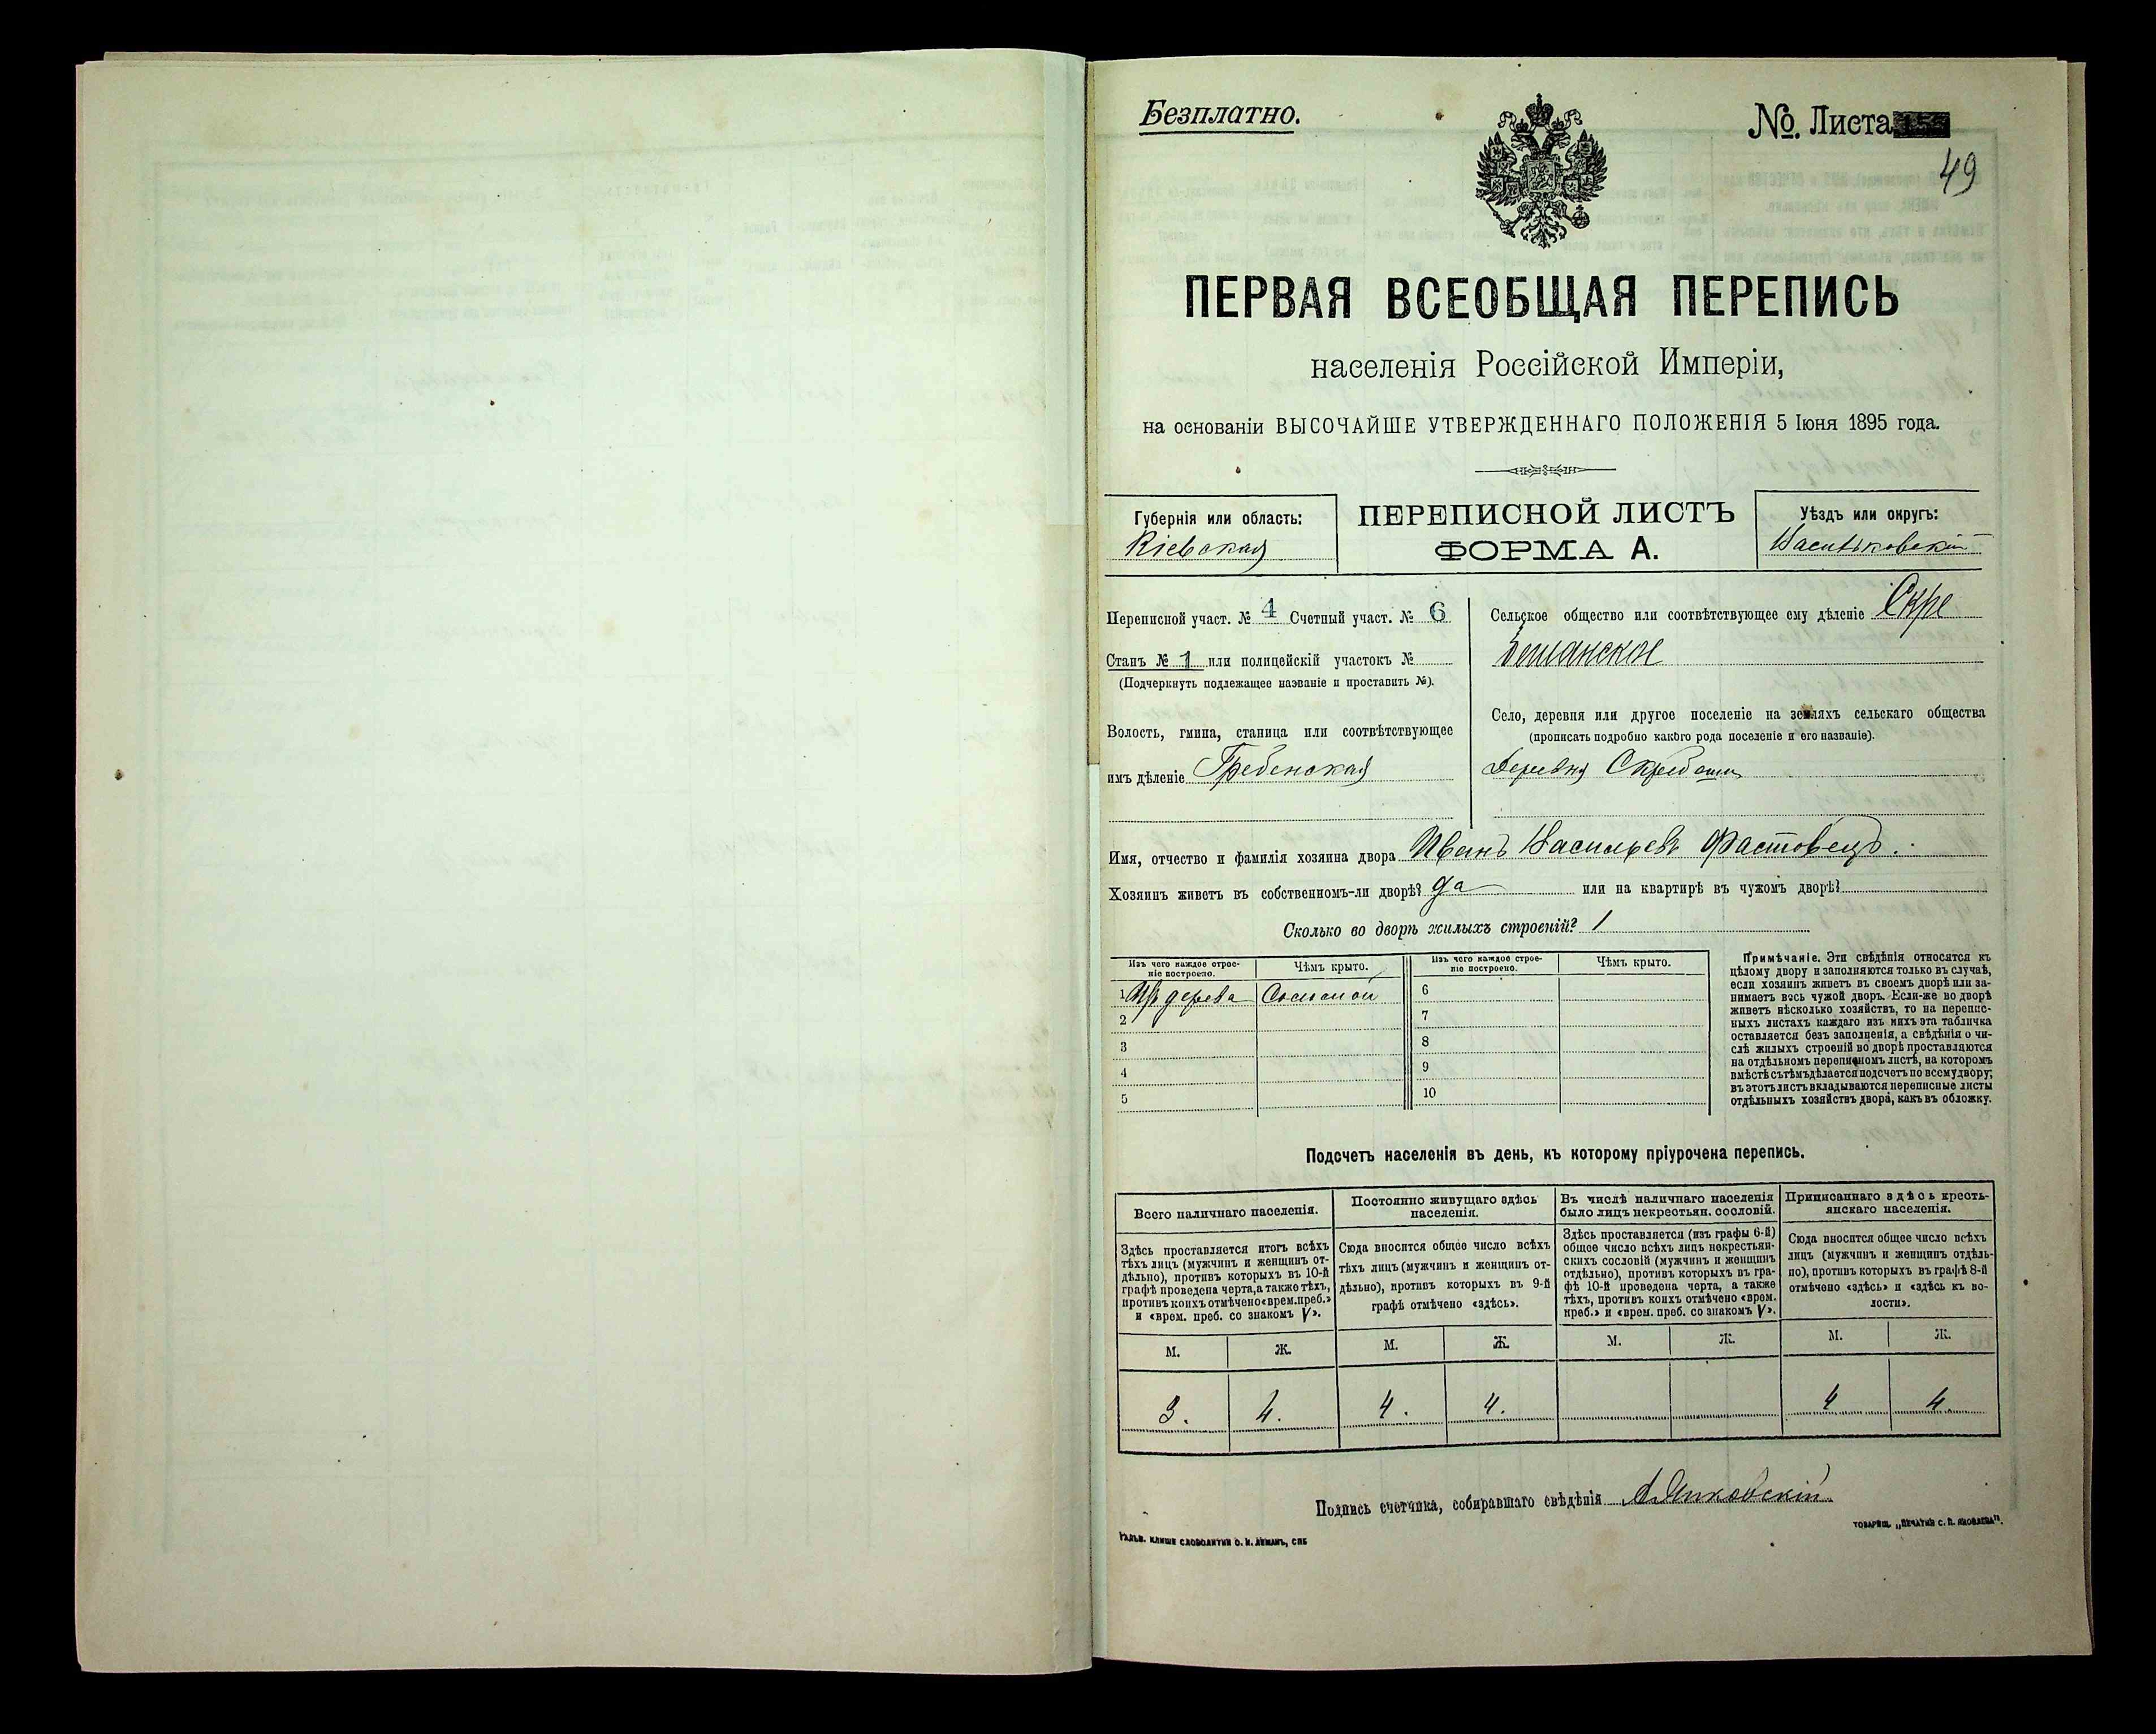 Безплатно.
№ Листа
49
ПЕРВАЯ ВСЕОБЩАЯ ПЕРЕПИСЬ
населенія Россійской Имперіи,
на основаніи ВЫСОЧАЙШЕ УТВЕРЖДЕННАГО ПОЛОЖЕНІЯ 5 Іюня 1895 года.
Губернія или область:
Кіевская
ПЕРЕПИСНОЙ ЛИСТЪ
ФОРМА А.
Уѣздъ или округъ:
Васильковскій
Переписной участ. № 4 Счетный участ. № 6
Станъ № 1 или полицейскій участокъ №
(Подчеркнуть подлежащее названіе и проставить №).
Волость, гмина, станица или соотвѣтствующее
имъ дѣленіе Гребенская
Сельское общество или соотвѣтствующее ему дѣленіе Скре
бышанское
Село, деревня или другое поселеніе на земляхъ сельскаго общества
(прописать подробно какого рода поселеніе и его названіе).
Деревня Скребыши
Имя, отчество и фамилія хозяина двора Иванъ Васильевъ Фастовецъ.
Хозяинъ живетъ въ собственномъ-ли дворѣ? да или на квартирѣ въ чужомъ дворѣ?
Сколько во дворѣ жилыхъ строеній? 1
Изъ чего каждое строе-
ніе построено.
Чѣмъ крыто.
Изъ чего каждое строе-
ніе построено.
Чѣмъ крыто.
1 Изъ дерева Соломой
2
3
4
5
6
7
8
9
10
Примѣчаніе. Эти свѣдѣнія относятся къ
цѣлому двору и заполняются только въ случаѣ,
если хозяинъ живетъ въ своемъ дворѣ или за-
нимаетъ весь чужой дворъ. Если-же во дворѣ
живетъ нѣсколько хозяйствъ, то на перепис-
ныхъ листахъ каждаго изъ нихъ эта табличка
оставляется безъ заполненія, а свѣдѣнія о чи-
слѣ жилыхъ строеній во дворѣ проставляются
на отдѣльномъ переписномъ листѣ, на которомъ
вмѣстѣ съ тѣмъ дѣлается подсчетъ по всему двору;
въ этотъ листъ вкладываются переписные листы
отдѣльныхъ хозяйствъ двора, какъ въ обложку.
Подсчетъ населенія въ день, къ которому пріурочена перепись.
Всего наличнаго населенія.
Здѣсь проставляется итогъ всѣхъ
тѣхъ лицъ (мужчинъ и женщинъ от-
дѣльно), противъ которыхъ въ 10-й
графѣ проведена черта, а также тѣхъ,
противъ коихъ отмѣчено «врем. преб.»
и «врем. преб. со знакомъ V».
Постоянно живущаго здѣсь
населенія.
Сюда вносится общее число всѣхъ
тѣхъ лицъ (мужчинъ и женщинъ от-
дѣльно), противъ которыхъ въ 9-й
графѣ отмѣчено «здѣсь».
Въ числѣ наличнаго населенія
было лицъ некрестьян. сословій.
Здѣсь проставляется (изъ графы 6-й)
общее число всѣхъ лицъ некрестьян-
скихъ сословій (мужчинъ и женщинъ
отдѣльно), противъ которыхъ въ гра-
фѣ 10-й проведена черта, а также
тѣхъ, противъ коихъ отмѣчено «врем.
преб.» и «врем. преб. со знакомъ V».
Приписаннаго здѣсь кресть-
янскаго населенія.
Сюда вносится общее число всѣхъ
лицъ (мужчинъ и женщинъ отдѣль-
но), противъ которыхъ въ графѣ 8-й
отмѣчено «здѣсь» и «здѣсь къ во-
лости».
М. Ж. М. Ж. М. Ж. М. Ж.
3. 4. 4. 4. 4 4
Подпись счетчика, собиравшаго свѣдѣнія
ГАЛЬВ. КЛИШЕ СЛОВОЛИТНИ О. И. ЛЕМАНЪ, СПБ
ТОВАРИЩ. „ПЕЧАТНИ С. П. ЯКОВЛЕВА".